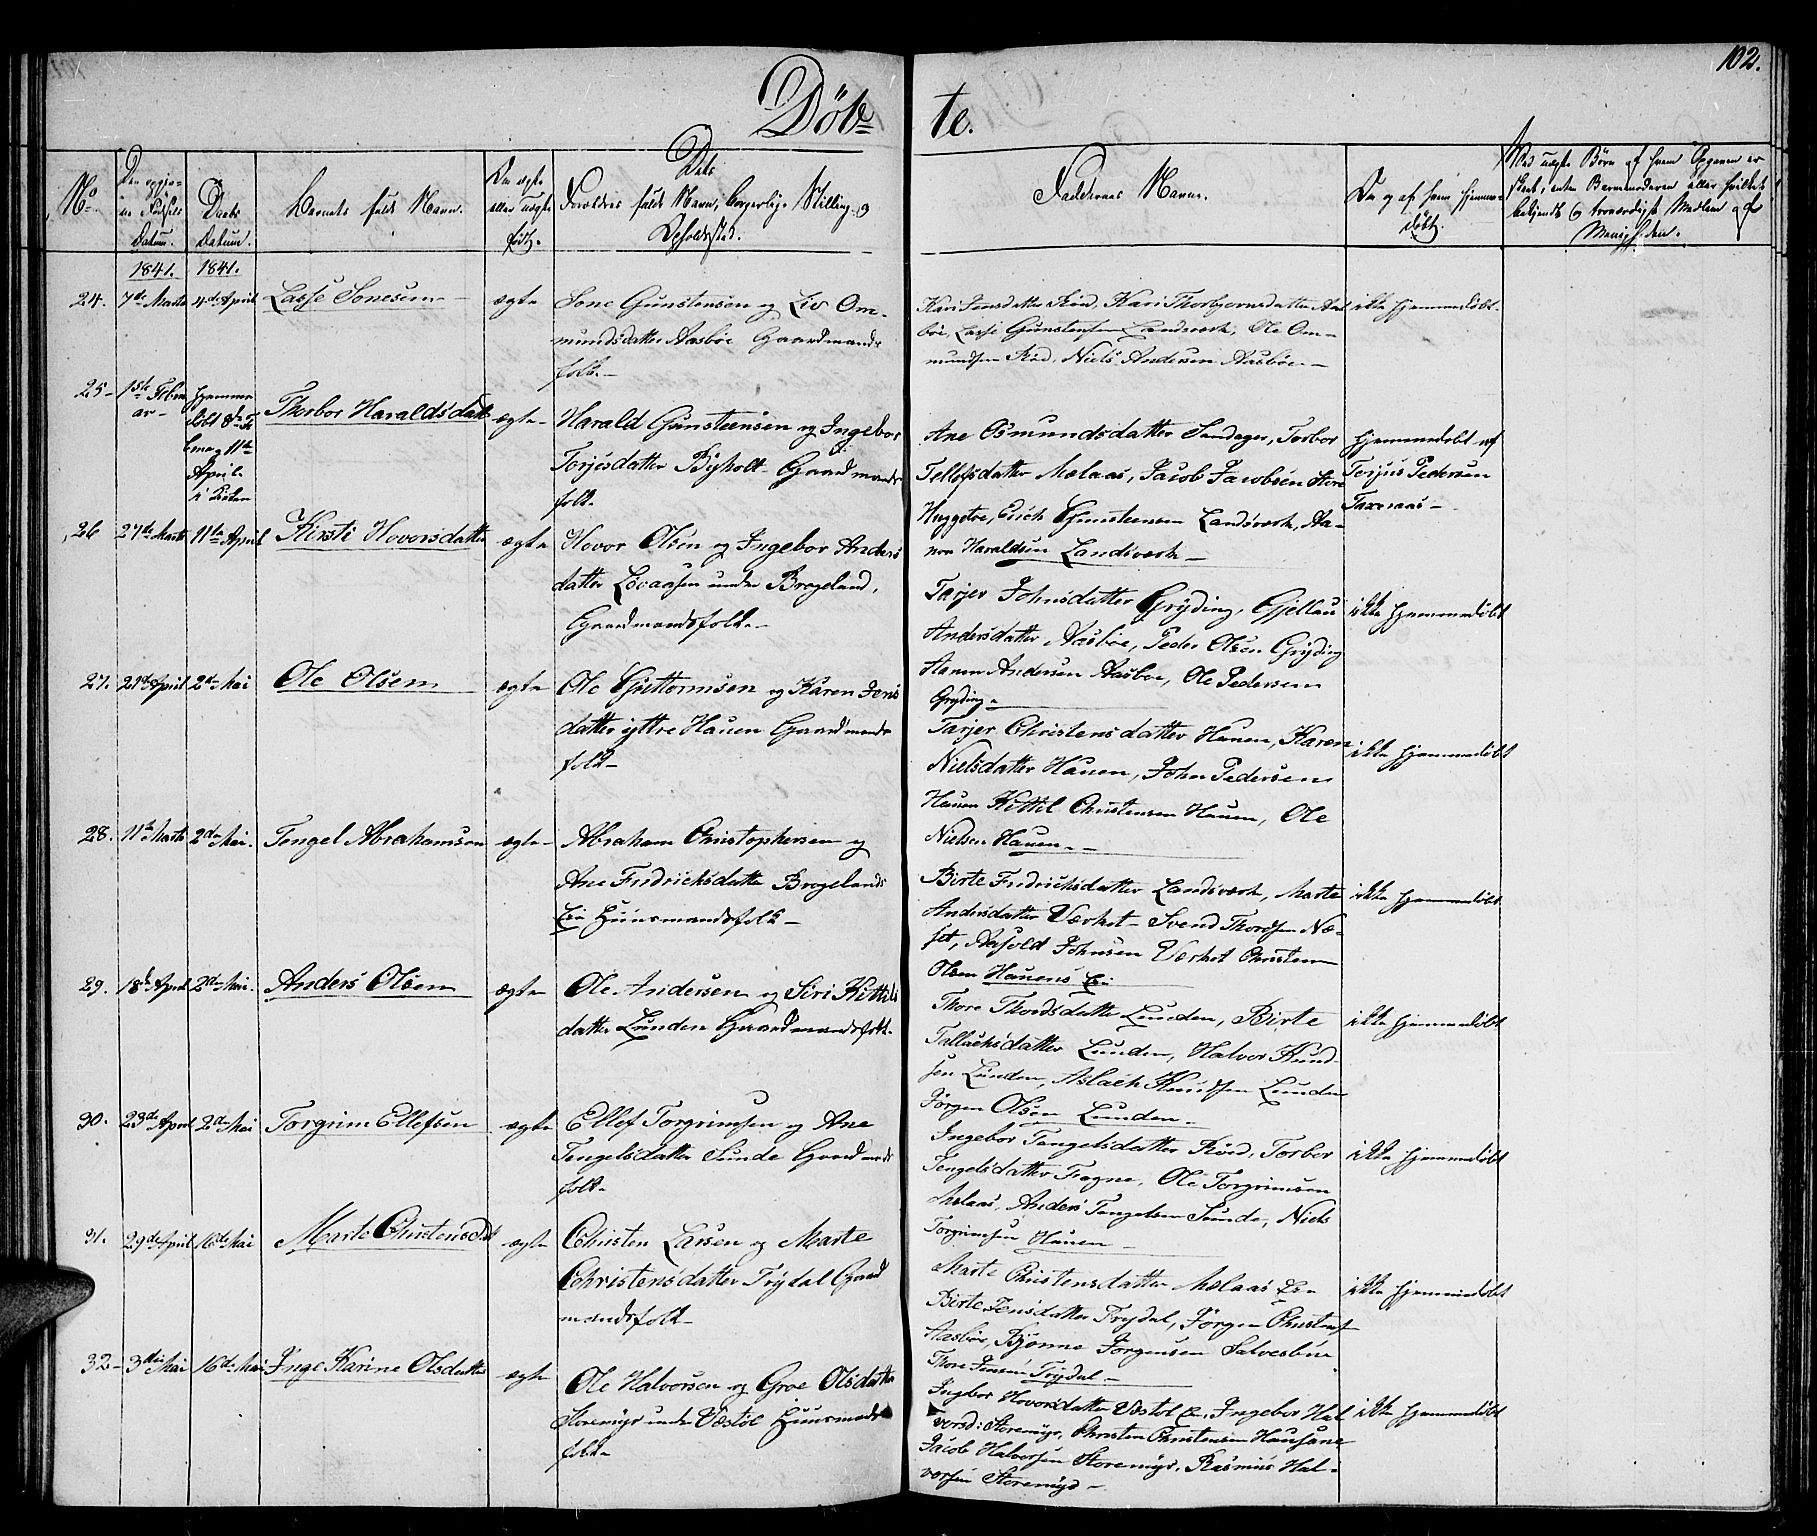 102.
Döb- te.
No
Den opgivne Fødsels Datum.
Daabs Datum.
Barnets fulde Navn.
Om ægte eller uægte født.
Dets Forældres fulde Navn, borgerlige Stilling og Opholdssted.
Faddernes Navne.
Om og af hvem hjemmedøbt.
Ved uægte Børn af hvem Opgaven er skeet, enten Barnemoderen eller hvilket bekjendt og troværdigt Medlem af Menigheden.
1841. 1841.
24. 7de Marts 4de April Lasse Sonesen ægte
Sone Gunstensen og Liv Om-
mundsdatter Aasböe Gaardmands
folk.
Kari Jensdatter Röed, Kari Thorbjørnsdatter Aas
böe, Lasse Gunstensen Landsverk, Ole Om-
mundsen Röed, Niels Andersen Aasböe
ikke hjemmedøbt.
25 1ste Febru
ar
hjemme
döbt 8de Fe
bruar 11te
April
i Kirken
Thorbor Haraldsdatt ægte
Harald Gunsteensen og Ingebor
Torjusdatter Byholt Gaardmands
folk.
Ane Osmundsdatter Sandager, Torbor
Tellefsdatter Mælaas, Jacob Jacobsen Store
Huggetoe, Erich Gunsteensen Landsverk, Aa-
non Haraldsen Landsverk
hjemmedöbt af
Torjus Pedersen
Taxeraas
26 27de Marts 11te April Kirsti Hovorsdatter ægte
Hovor Olsen og Ingebor Anders
datter Lövaasen under Brogeland,
Gaardmandsfolk
Tarjer Johnsdatter Gryding, Gjellau
Andersdatter Aasböe, Peder Olsen Gryding
Steener Andersen Aasböe, Ole Pedersen
Gryding
ikke hjemmedöbt
27. 21de April 2den Mai Ole Olsen ægte
Ole Guttormsen og Karen Jens
datter yttre Hauen Gaardmands
folk
Tarjer Christensdatter Hauen, Karen
Nielsdatter Hauen, John Pedersen
Hauen Kittil Christensen Hauen, Ole
Nielsen Hauen
ikke hjemmedöbt
28. 11te Marts 2den Mai. Tengel Abrahamsen ægte
Abraham Christophersen og
Ane Fredrichsdatter Brogelands
Eie Huusmandsfolk
Birte Fredrichsdatter Landsverk, Marte
Andersdatter Værket Svend Thordsen Næ-
set, Aasold Johnsen Værket Christen
Olsen Hauens Eie
ikke hjemmedöbt
29. 18de April 2den Mai. Anders Olsen ægte
Ole Andersen og Siri Kittils
datter Lunden Gaardmandsfolk
Thore Thordsdatter Lunden, Birte
Tallachsdatter Lunden, Halvor Knud-
sen Lunden, Aslach Knudsen Lunden
Jörgen Olsen Lunden
ikke hjemmedöbt
30. 23de April 2den Mai Torgrim Ellefsen ægte
Ellef Torgrimsen og Ane
Tengelsdatter Sunde Gaardmands
folk
Ingebor Tengelsdatter Röed, Torber
Tengelsdatter Fragne, Ole Torgrimsen
Mælaas, Anders Tengelsen Sunde, Niels
Torgrimsen Hauen
ikke hjemmedöbt
31. 29de April 16de Mai Marte Christensdt ægte
Christen Larsen og Marte
Christensdatter Trydal Gaard
mandsfolk
Marte Christensdatter Mælaas Eie
Birte Jensdatter Trydal, Jörgen Christens
Aasböe, Bjönne Jörgensen Salvesböe
Thore Jensen Trydal
ikke hjemmedöbt
32 3die Mai 16de Mai Inge Karine Olsdatter ægte
Ole Halvorsen og Groe Olsdatter
Storemyr under Væstöl Huusmands
folk
Ingbor Hovorsdatter Væstöl Eie, Ingebor Hal
vorsd: Storemyr, Christen Christensen Hausane
Jacob Halvorsen Storemyr, Rasmus Hal-
vorsen Storemyr
ikke hjemmedöbt